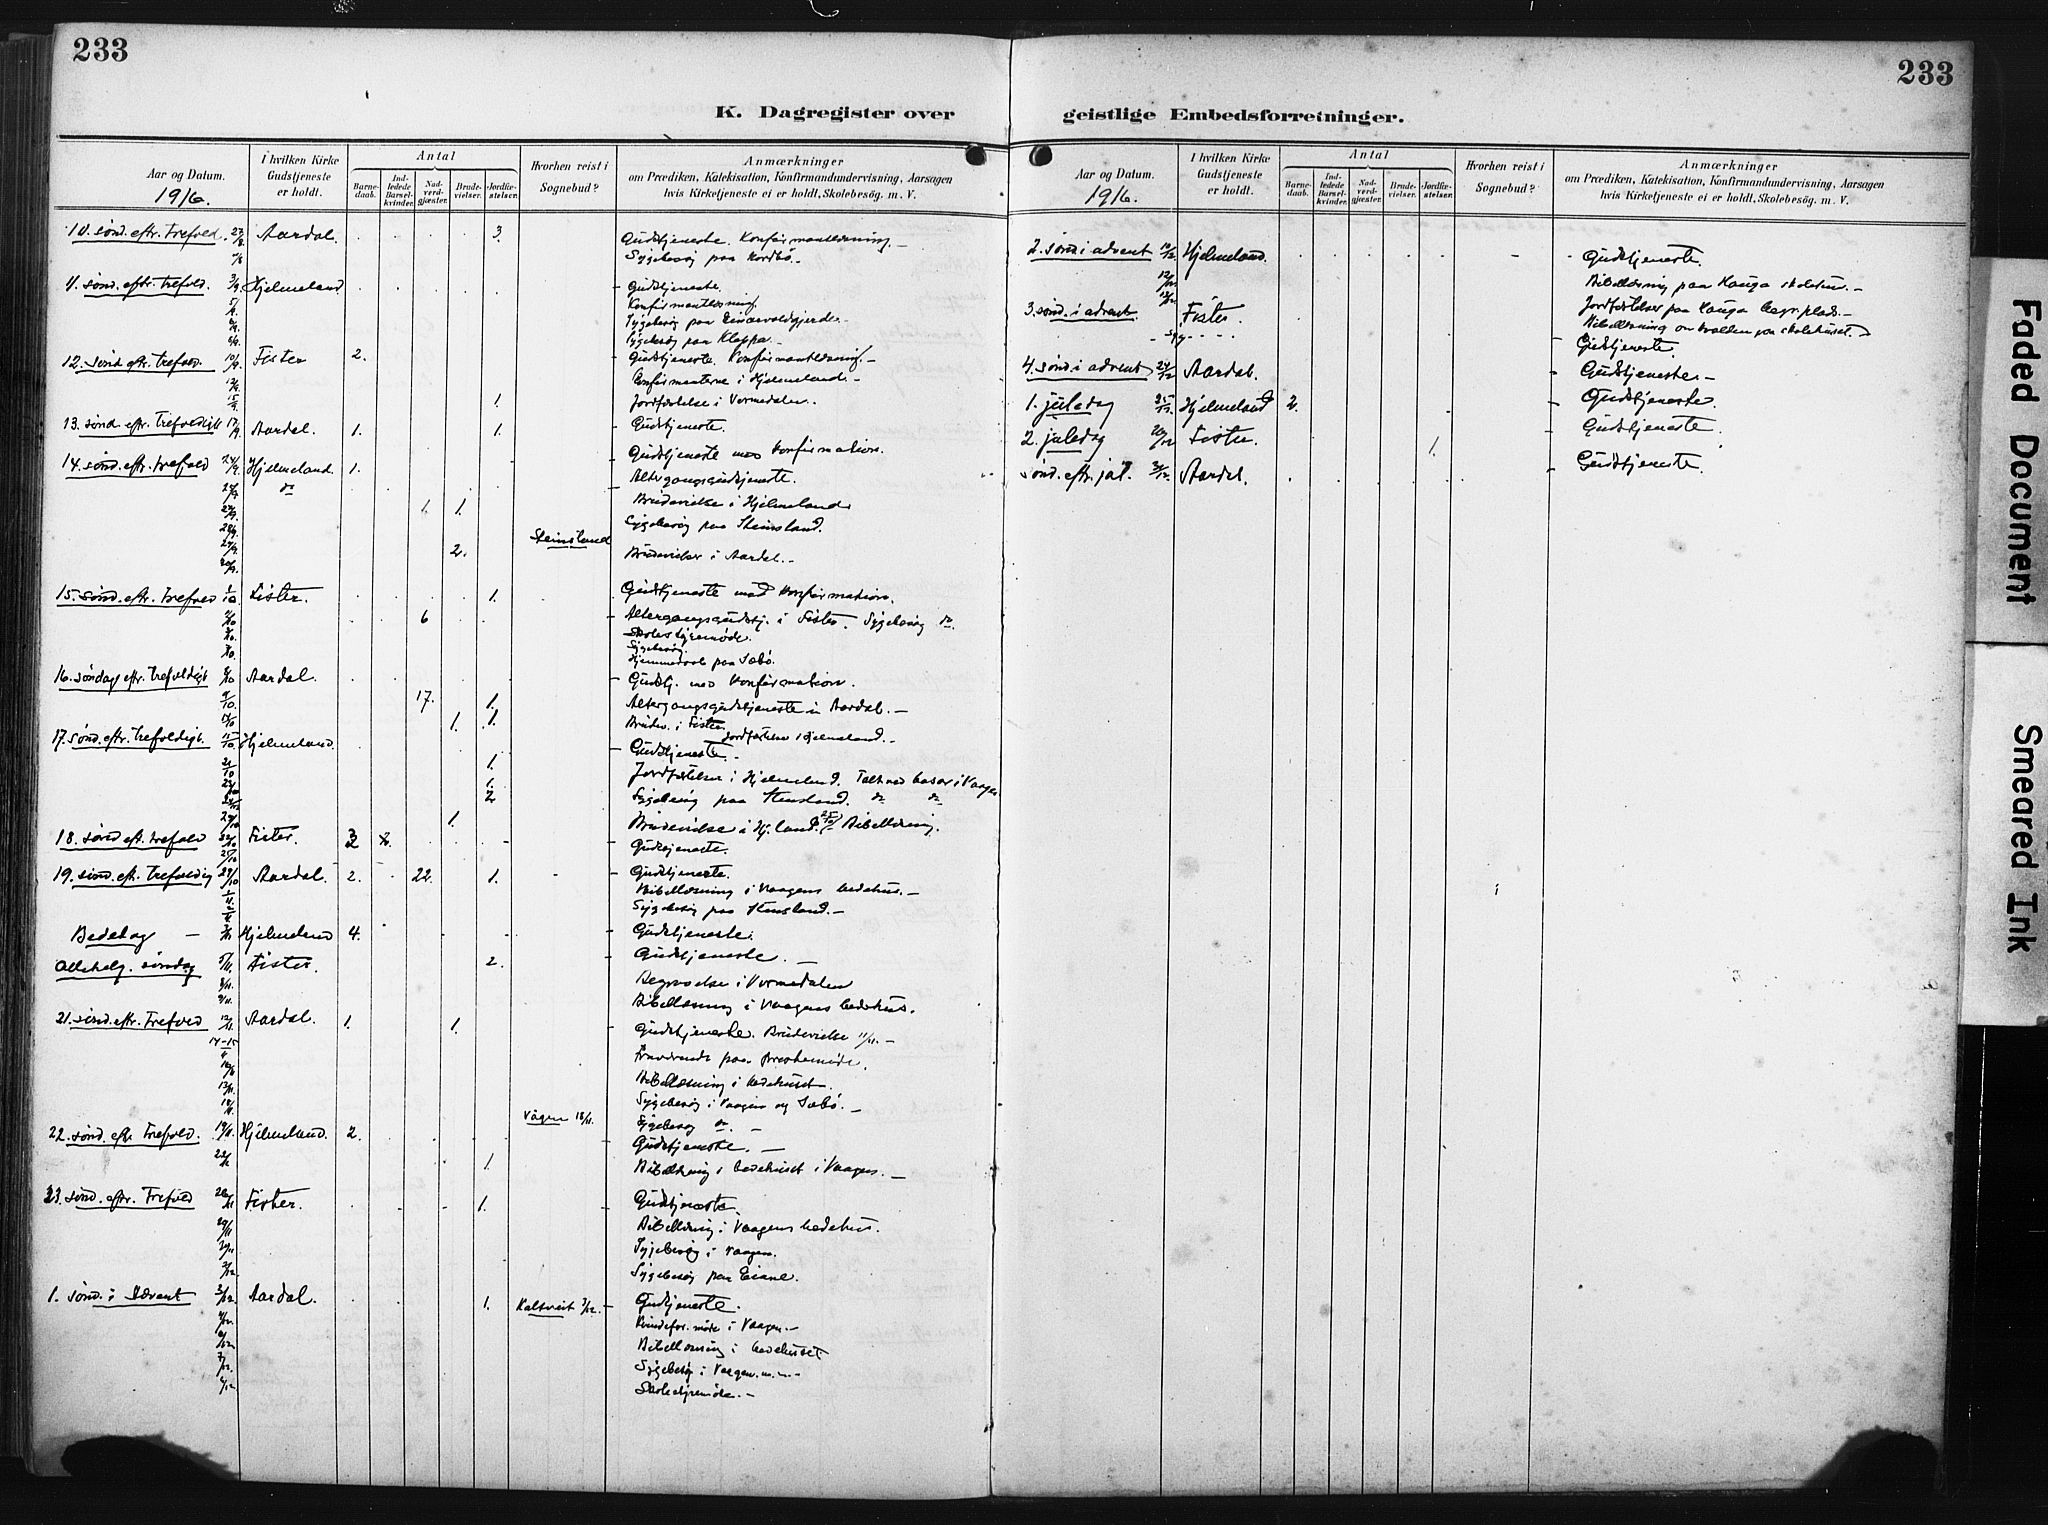 233
K. Dagregister over
Aar og Datum.
1916.
I hvilken Kirke
Gudstjeneste
er holdt.
Antal
Barne-
daab.
Ind-
ledede
Barsel-
kvinder.
Nad-
verd-
gjæster.
Brude-
vielser.
Jordfæ-
stelser.
Hvorhen reist i
Sognebud?
Anmærkninger
om Prædiken, Katekisation, Konfirmandundervisning, Aarsagen
hvis Kirketjeneste ei er holdt, Skolebesøg. m. V.
10. sønd. eftr. trefold. 27/8 Aardal. 3. Gudstjeneste. Konfirmantlæsning. –
Sygebesøg paa Nordbø. –
11. sønd. eftr. trefold. 3/9 Hjelmeland – Gudstjeneste.
Konfirmantlæsning.
Sygebesøg paa
Sygebesøg paa Kleppa. –
12. sønd eftr. trefold. 10/9 Fister 2. – Gudstjeneste. Konfirmantlæsning. –
Konfirmanterne i Hjelmeland. –
15/9 1. Jordfæstelse i Vormedalen.
13. sønd. eftr. trefoldigh 17/9 Aardal. 1. 1. – Gudstjeneste.
14. sønd. eftr. trefold 24/9 Hjelmeland 1. – Gudstjeneste med Konfirmation.
do – Altergangsgudstjeneste.
1. 1. Brudevielse i Hjelmeland
Sygebesøg paa Steinsland.
Steinsland
2. Brudevielser i Aardal. –
15. sønd. eftr. trefold 1/10 Fister. 1. Gudstjeneste med Konfirmation.
6 – Altergangsgudstj. i Fister. Sygebesøg do.
Skolestyremøde.
Sygebesøg.
paa Sæbø.
16. søndag eftr. trefoldigh 8/10 Aardal. – Gudstj. med Konfirmation.
9/10. 17. 1. Altergangsgudstjeneste i Aardal. –
1. 1. Brudev. i Fister.
Jordfæstelse i Hjelmeland. –
17. sønd. eftr. trefoldigh. 15/10 Hjelmeland – Gudstjeneste. –
21/10 1. Jordfæstelser i Hjelmeland. Talt ved basar i Vaagen
1.
2 Sygebesøg paa Stensland. do do
1. Brudevielse i Hj.land. Bibellæsning.
18. sønd eftr. trefold 22/10 Fister. 3 – Gudstjeneste.
19. sønd. eft. trefoldig 29/10 Aardal. 2. 22. 1. – Gudstjeneste.
Bibellæsning i Vaagens bedehus. –
Sygebesøg paa Stensland. –
Bededag – 3/11 Hjelmeland 4. – Gudstjeneste.
Allehelg. søndag 5/11. Fister. 2. – Gudstjeneste. –
8/11. Begravelse i Vormedalen
9/11. Bibellæsning i Vaagens bedehus.
21. sønd. eftr. trefold 12/11. Aardal. 1. 1. – Gudstjeneste. Brudevielse 11/11. –
14-15 Fraværende paa Prestemøde.
Bibellæsning i bedehuset.
18/11. Sygebesøg i Vaagen og Sæbø. –
Vågen 18/11. – Sygebesøg do. –
22. sønd. eftr. trefold. 19/11. Hjelmeland. 2. – Gudstjeneste. –
1. Bibellæsning i bedehuset i Vaagen. –
23. sønd. eftr. trefold 26/11 Fister. 1. – Gudstjeneste.
29/11 Bibellæsning i Vaagens bedehus.
Sygebesøg i Vaagen.
Sygebesøg paa Eiane.
1. sønd. i Advent 3/12. Aardal. 1. Kaltveit 3/12. – Gudstjeneste.
Kvindefor. møde i Vaagen. –
Bibellæsning i bedehuset
7/12. Sygebesøg i Vaagen.
Skolestyremøde. –
233
geistlige Embedsforretninger.
Aar og Datum.
1916.
I hvilken Kirke
Gudstjeneste
er holdt.
Antal
Barne-
daab.
Ind-
ledede
Barsel-
kvinder.
Nad-
verd-
gjæster.
Brude-
vielser.
Jordfæ-
stelser.
Hvorhen reist i
Sognebud?
Anmærkninger
om Prædiken, Katekisation, Konfirmandundervisning, Aarsagen
hvis Kirketjeneste ei er holdt, Skolebesøg. m. V.
2. sønd i advent 10/12 Hjelmeland. – Gudstjeneste.
12/12 Bibellæsning paa Hauga skolehus. –
3. sønd. i advent. Fister. Jordfæstelser paa Hauga begr.plads. –
Bibellæsning paa skolehuset. –
– Gudstjeneste.
4. sønd i advent 24/12 Aardal. – Gudstjeneste –
1. juledag 25/12. Hjelmeland 2. – Gudstjeneste.
2. juledag 26/12 Fister. 1. – Gudstjeneste.
Sønd. eftr. jul. 31/12. Aardal. – Gudstjeneste.
Faded Document
Smeared Ink